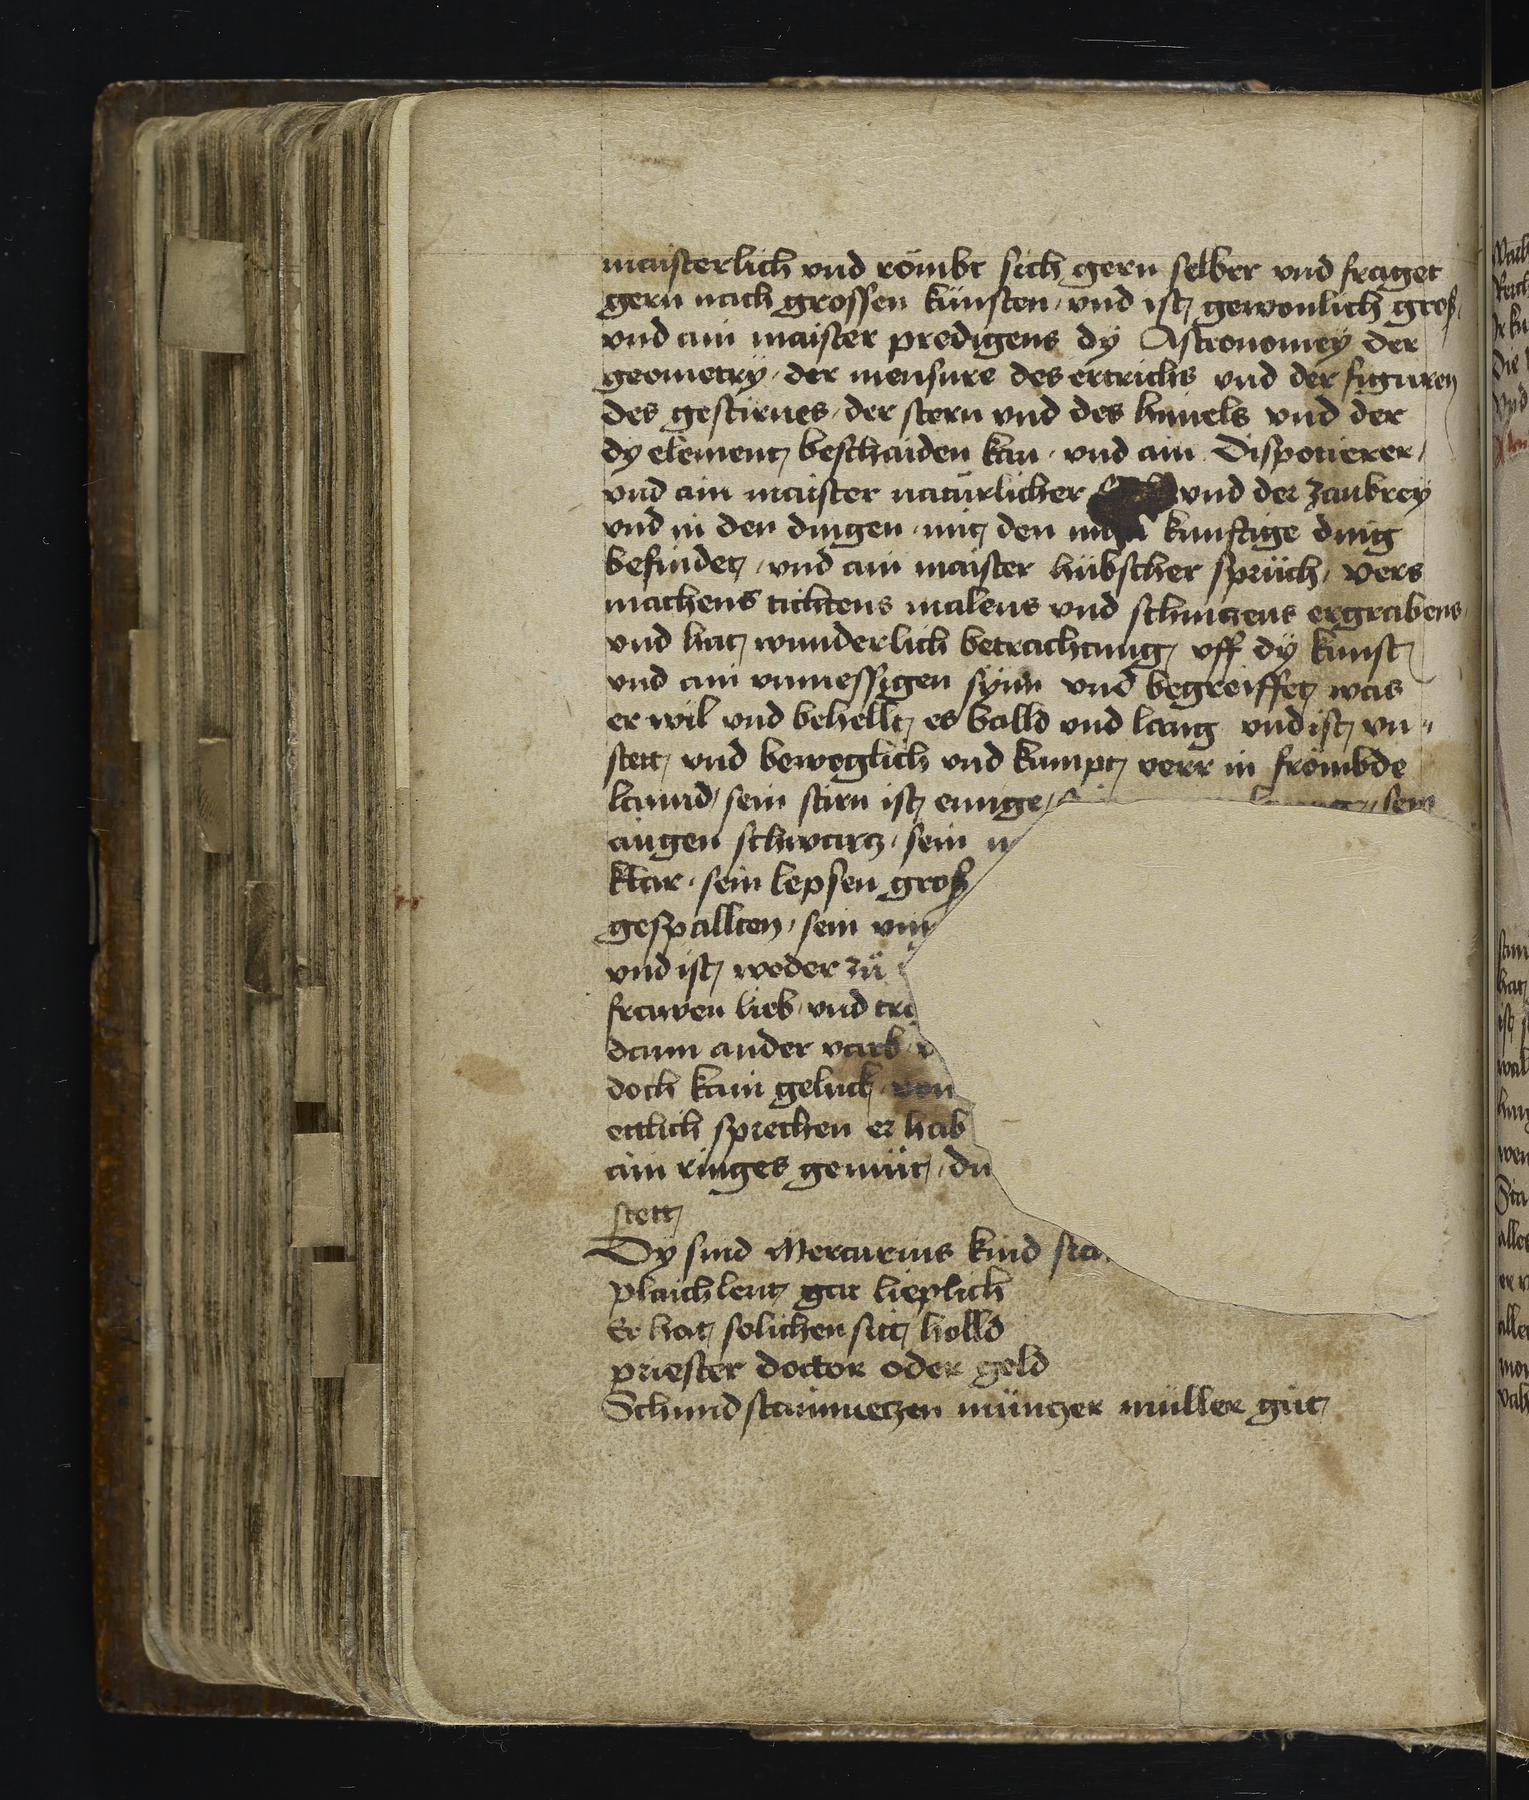 maisterlich vnd römbt sich gern selber vnd fraget
gern nach grossen künsten / vnd ist gewonlich groß
vnd ain maister predigens dy Astronomey der
geometry / der mensure des ertrichs vnd der figuren
des gestirnes / der stern vnd des himels vnd der
dy element beschaiden kan / vnd ain Disputierer /
vnd ain maister natürlicher vnd der zaubrey
vnd in den dingen / mit den man kunftige ding
befindet / vnd ain maister hübscher sprüch / vers
machens tichtens malens vnd schnitzens ergrabens
vnd hat wunderlich betrachtung vff dy kunst
vnd ain vnmessigen synn vnd begreiffet was
er wil vnd behellt es balld vnd lang vnd ist vn
stett vnd beweglich vnd kumpt verr in frömbde
lannd / sein stirn ist ennge / sein
augen schwarz / sein
klar / sein lepsen groß
gespallten / sein
vnd ist weder zü
frawen lieb / vnd
dann ander varb
doch kain geluck von
ettlich sprechen er hab
ain ringes gemüt / du
stett
Dy sind Mercurius kind
plaich lent gar lieplich
Er hat solichen sitt holld
priester doctor oder gold
Schmid stainmetzen müntzer müller güt